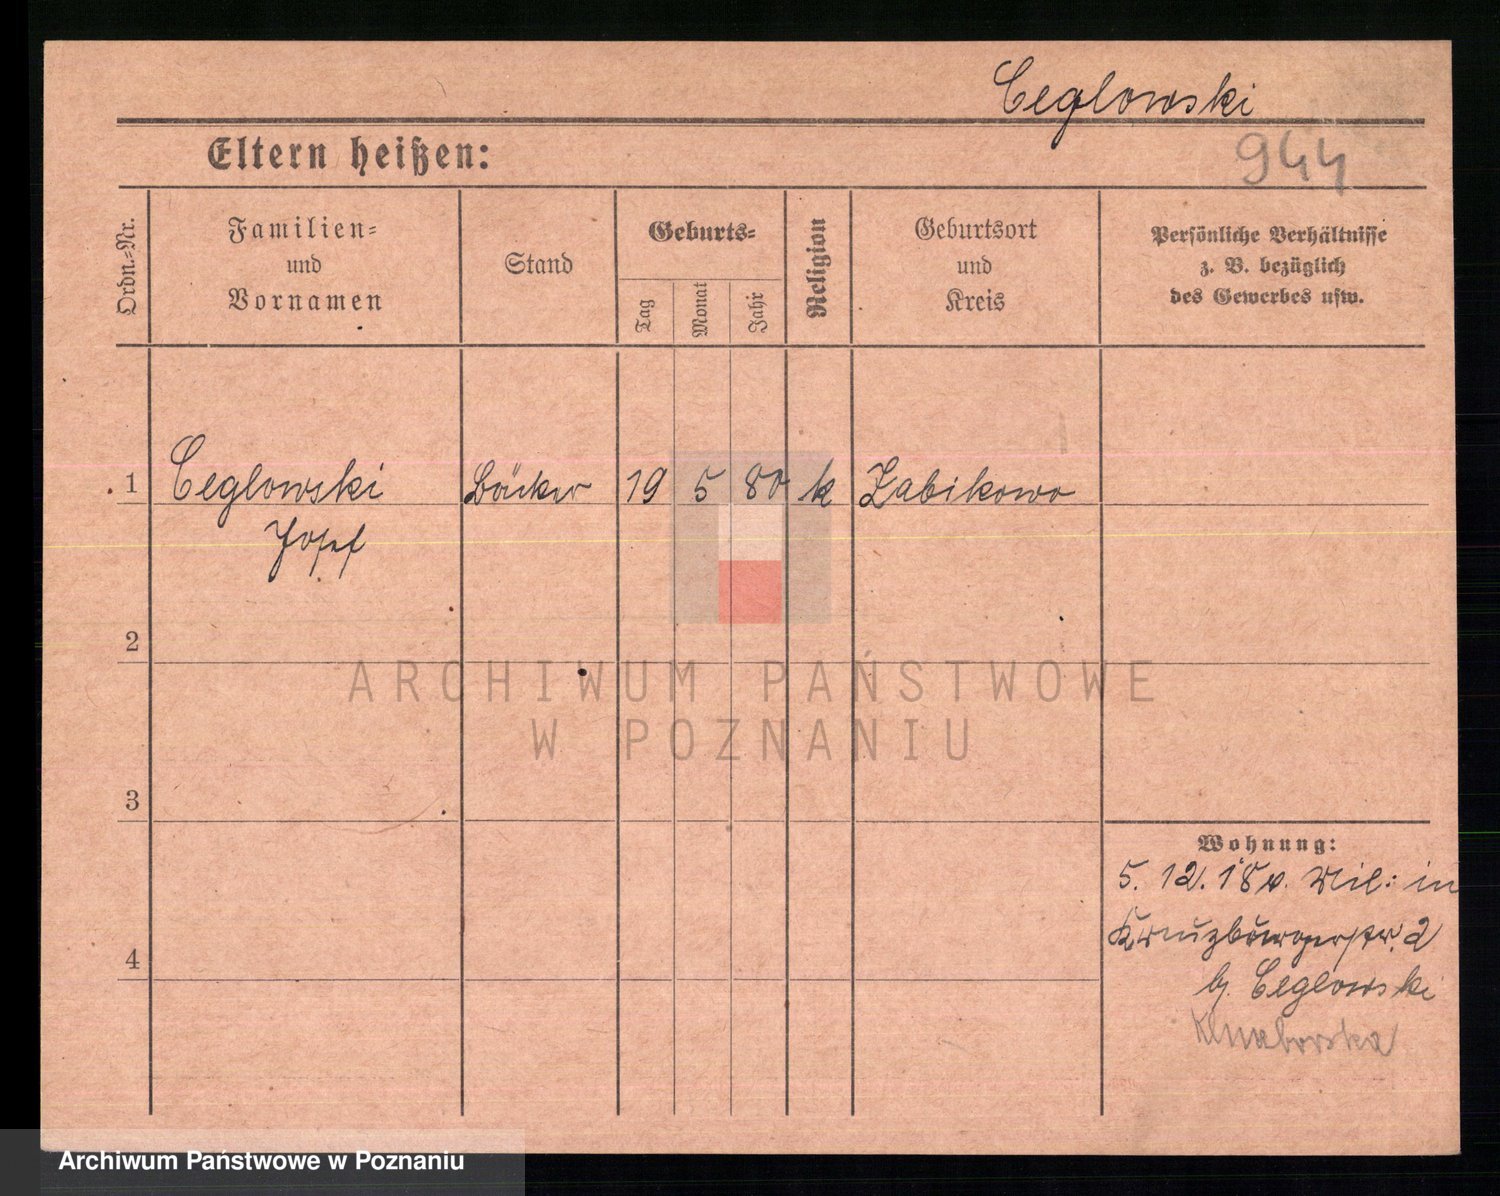 Ceglowski
944
Eltern heißen:
Ordn.-Nr.
Familien-
und
Vornamen
Stand
Geburts-
Tag
Monat
Jahr
Religion
Geburtsort
und
Kreis
Persönliche Verhältnisse
z. B. bezüglich
des Gewerbes usw.
1
Ceglowski
Josef
Bäcker
19
5
80
k
Zabikowo
2
ARCHIWUM PAŃSTWOWE
W POZNANIU
3
Wohnung:
5. 12. 18 v. Mil: in
Kreuzburgerstr. 2
b. Ceglowski
4
Archiwum Państwowe w Poznaniu